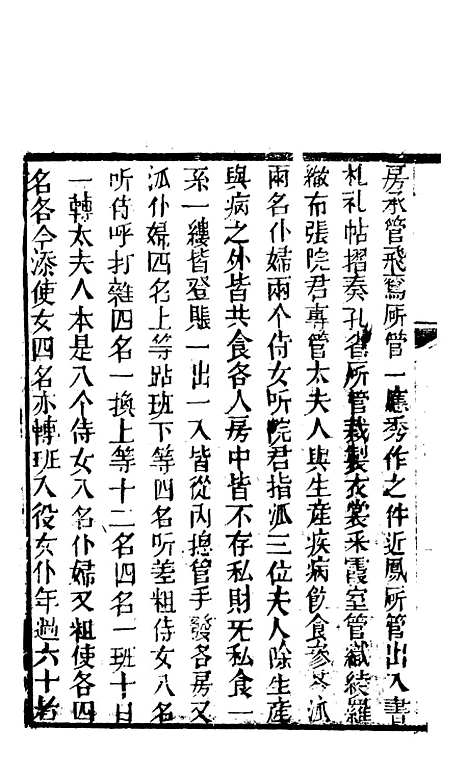 房承管飛鳬所管一應秀作之件近鳳所管出入書
札礼帖摺奏孔雀所管裁製衣裳采霞室管織綾羅
緞布張院君專管太夫人與生産疾病飲食參苓派
兩名仆婦兩个侍女听院君指派三位夫人除生産
與病之外皆共食各人房中皆不存私財无私食一
系一縷皆登賬一出一入皆從內揔管手發各房又
派仆婦四名上等跕班下等四名听差粗侍女八名
听侍呼打雜四名一換上等十二名四名一班十日
一轉太夫人本是八个侍女八名仆婦又粗使各四
名各今添使女四名亦轉班入役女仆年過六十者